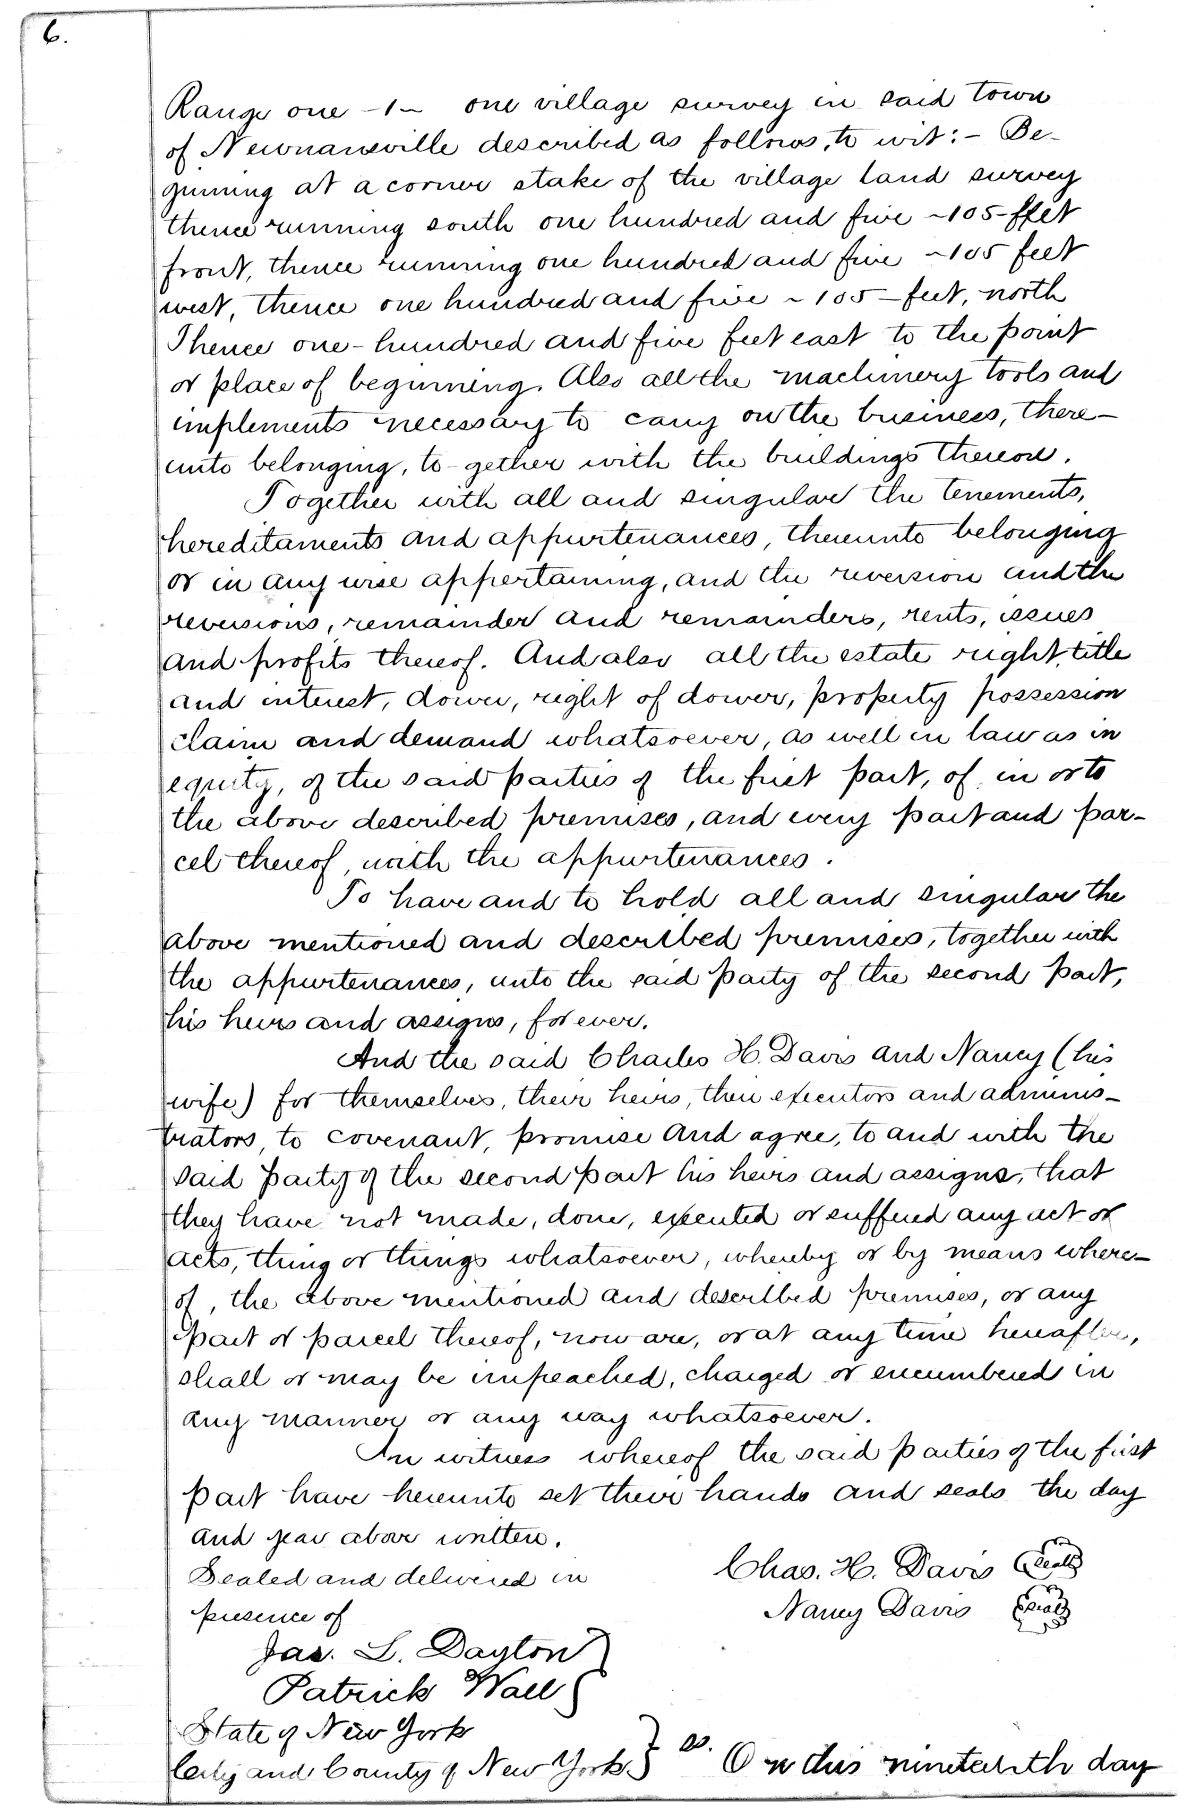 6.
Range one -1- one village survey in said town
of Newnansville described as follows, to wit:- Be-
ginning at a corner stake of the village land survey
thence running south one hundred and five -105- ffet
front, thence running one hundred and five -105 feet
west, thence one hundred and five - 105 - feet, north
Thence one-hundred and five feet east to the point
or place of beginning. Also all the machinery tools and
implements necessary to carry on the business, there-
unto belonging, to-gether with the buildings thereon.
Together with all and singular the tenements,
hereditaments and appurtenances, thereunto belonging
or in any wise appertaining, and the reversion and the
reversions, remainder and remainders, rents, issues
and profits thereof. And also all the estate right, title
and interest, dower, right of dower, property possession
claim and demand whatsoever, as well in law as in
equity, of the said parties of the first part, of, in or to
the above described premises, and every part and par-
cel thereof, with the appurtenances.
To have and to hold all and singular the
above mentioned and described premises, together with
the appurtenances, unto the said party of the second part,
his heirs and assigns, forever.
And the said Charles H. Davis and Nancy (his
wife) for themselves, their heirs, their executors and adminis-
trators, to covenant, promise and agree, to and with the
said party of the second part his heirs and assigns, that
they have not made, done, executed or suffered any act or
acts, thing or things whatsoever, whereby or by means where-
of, the above mentioned and described premises, or any
part or parcel thereof, now are, or at any time hereafter,
shall or may be impeached, charged or encumbered in
any manner or any way whatsoever.
In witness whereof the said parties of the first
part have hereunto set their hands and seals the day
and year above written.
Sealed and delivered in Chas. H. Davis (seal)
presence of Nancy Davis (seal)
Jas. L. Dayton }
Patrick Wall }
State of New York
City and County of New York } ss. On this nineteenth day